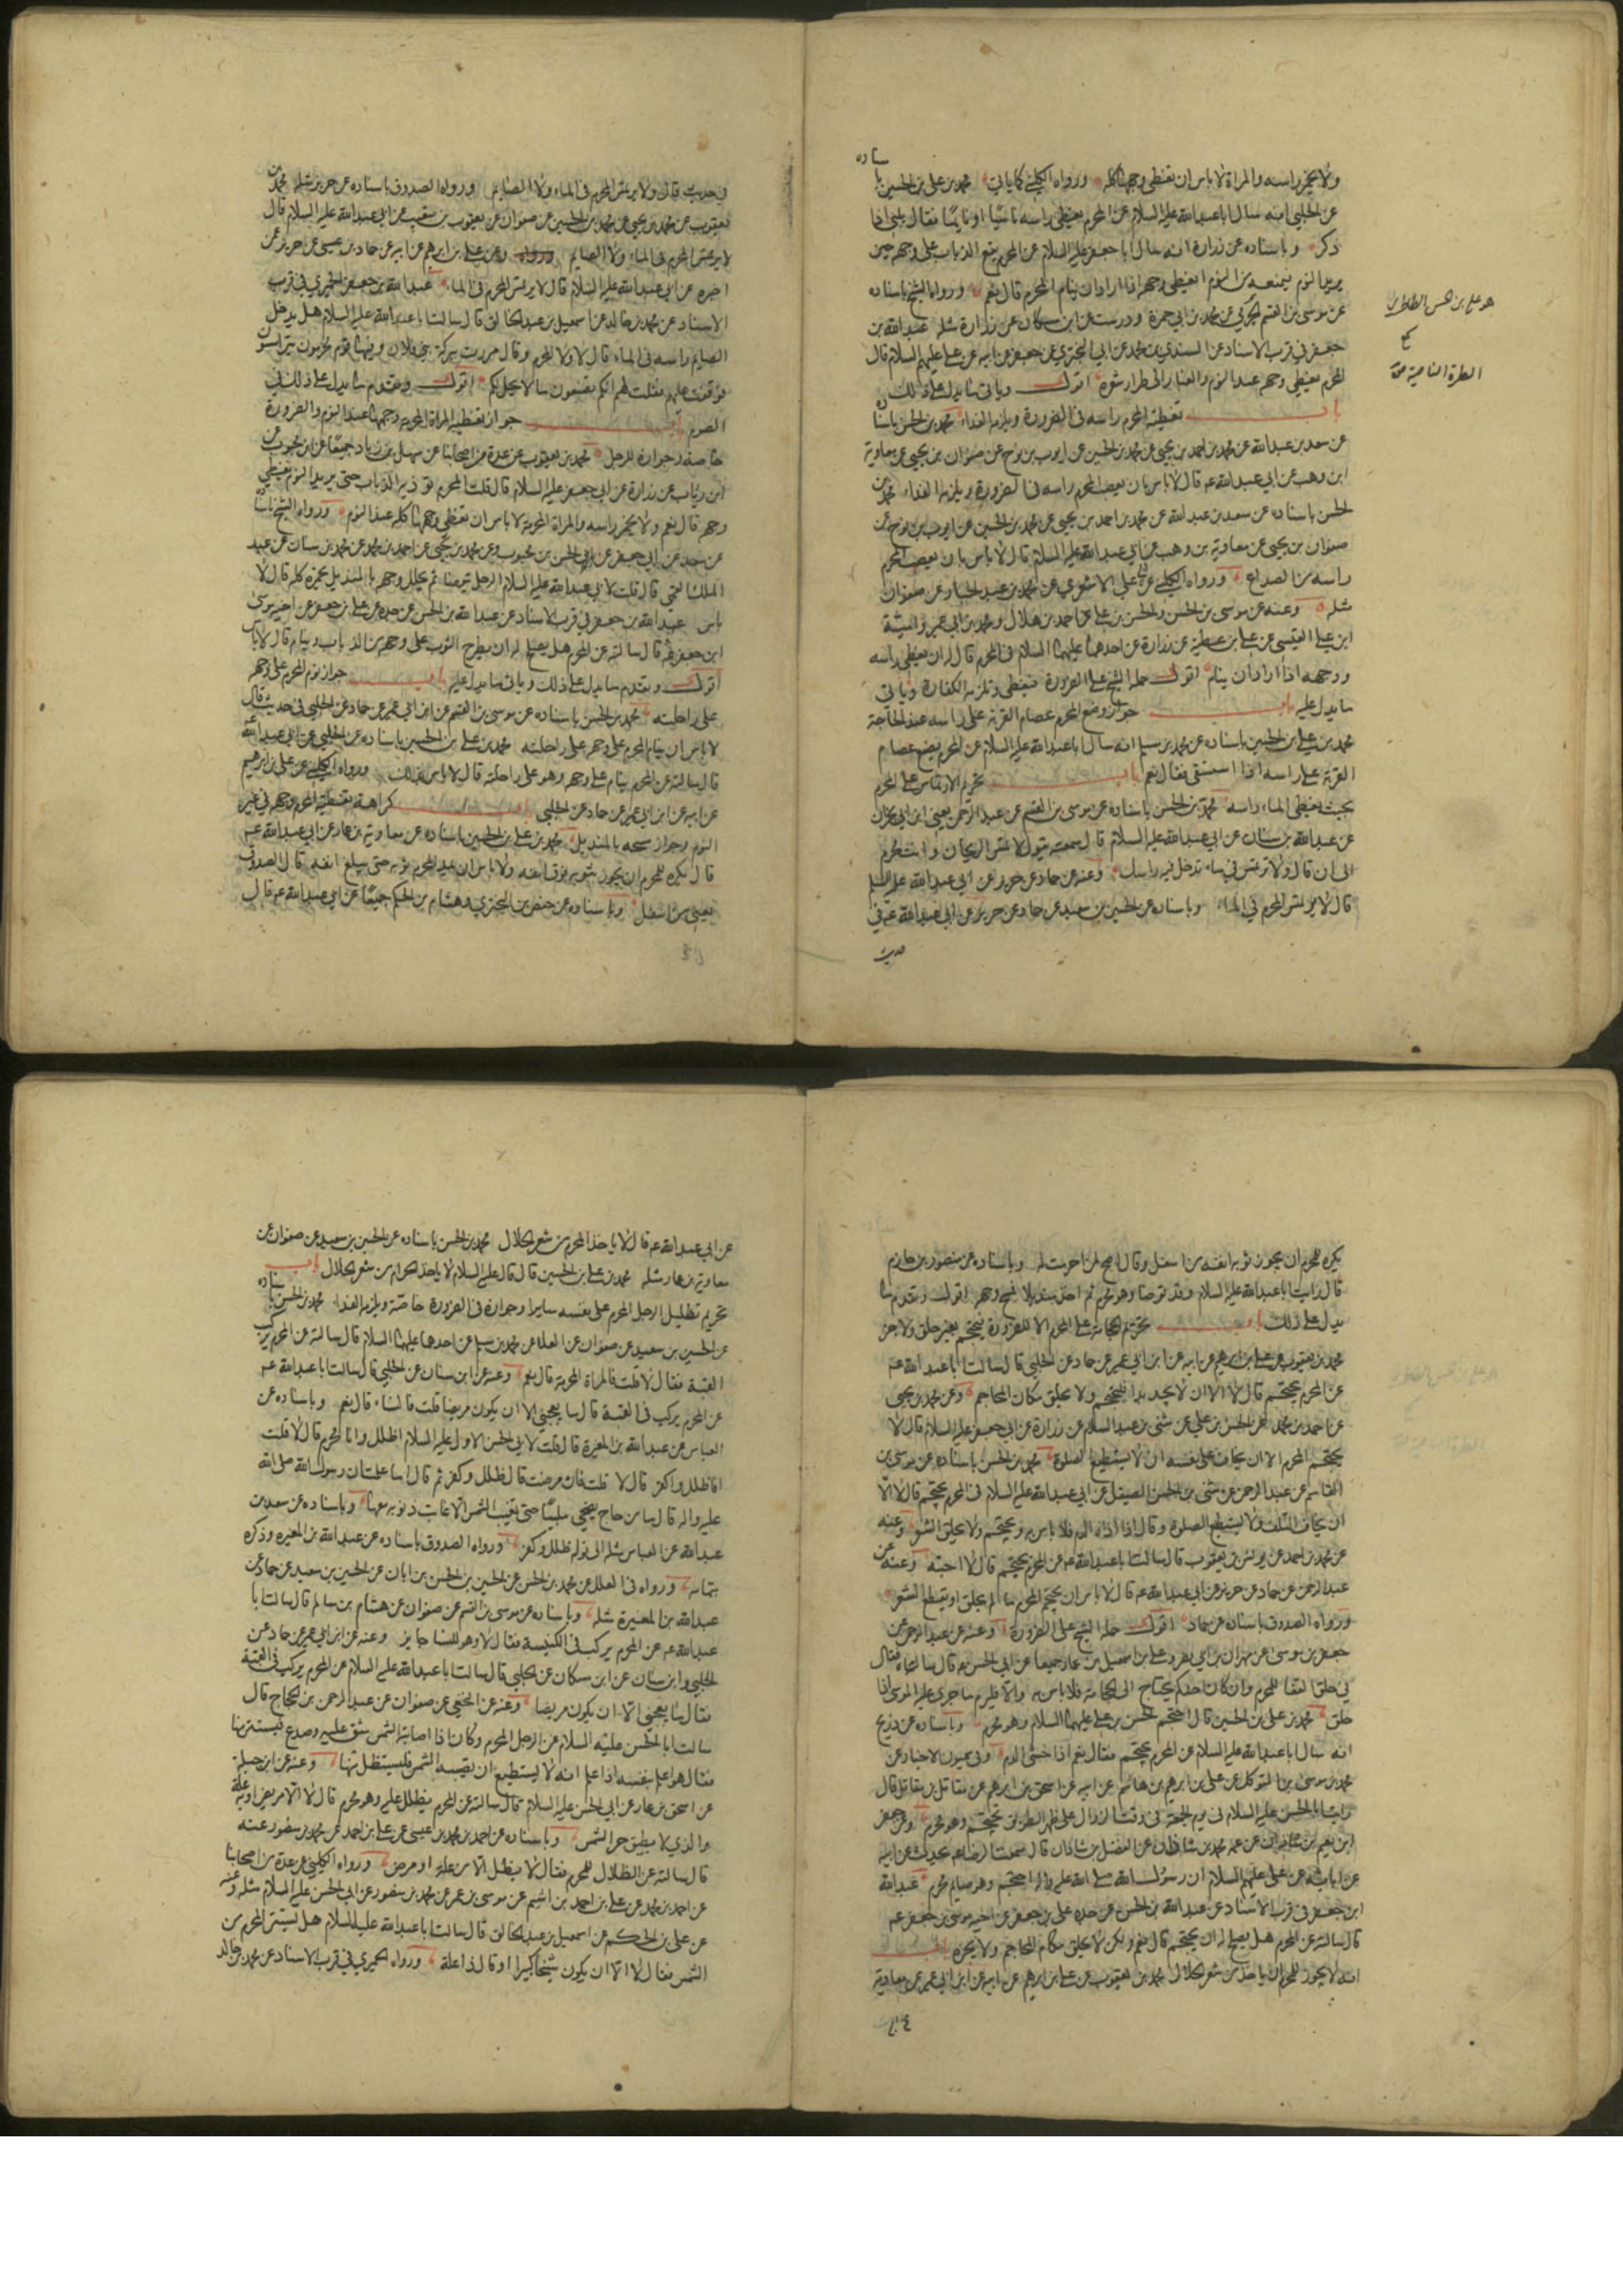 ولا يخمر راسه والمراة لا باس ان تغطى وجهها كله ورواه الكليني كما ياتي محمد بن علي بن الحسين باسناده
عن الحلبي انه سال ابا عبد الله عليه السلام عن المحرم يغطى راسه ناسيا او نايما فقال يلبي اذا
ذكر وباسناده عن زرارة انه سال ابا جعفر عليه السلام عن المحرم يقع الذباب على وجهه حين
يريد النوم فيمنعه من النوم ايغطى وجهه اذا اراد ان ينام المحرم قال نعم ورواه الشيخ باسناده
عن موسى بن القسم عن محمد بن ابي حمزة ودرست عن ابن مسكان عن زرارة مثله عبد الله بن
جعفر في قرب الاسناد عن السندي بن محمد عن ابي البختري عن جعفر عن ابيه عن علي عليهم السلام قال
المحرم يغطى وجهه عند النوم والغبار الى طرار شعره اقول وياتي ما يدل على ذلك
باب تغطية المحرم راسه في الضرورة ويلزمه الفداء محمد بن الحسن باسناده
عن سعد بن عبد الله عن محمد بن احمد بن يحيى عن محمد بن الحسين عن ايوب بن نوح عن صفوان بن يحيى عن معاوية
ابن وهب عن ابي عبد الله عم قال لا باس بان يعصب المحرم راسه في الضرورة ويلزمه الفداء محمد بن
الحسن باسناده عن سعد بن عبد الله عن محمد بن احمد بن يحيى عن محمد بن الحسين عن ايوب بن نوح عن
صفوان بن يحيى عن معاوية بن وهب عن ابي عبد الله عليه السلام قال لا باس بان يعصب المحرم
راسه من الصداع ورواه الكليني عن ابي علي الاشعري عن محمد بن عبد الجبار عن صفوان
مثله وعنه عن موسى بن الحسن والحسن بن علي عن احمد بن هلال ومحمد بن ابي عمير وامية
ابن علي القيسي عن علي بن عطية عن زرارة عن احدهما عليهما السلام في المحرم قال له ان يغطى راسه
ووجهه اذا اراد ان ينام اقول حمله الشيخ على الضرورة فيغطى وتلزمه الكفارة وياتي
ما يدل عليه باب جواز وضع المحرم عصام القربة على راسه عند الحاجة
محمد بن علي بن الحسين باسناده عن محمد بن مسلم انه سال ابا عبد الله عليه السلام عن المحرم يضع عصام
القربة على راسه اذا استسقى فقال نعم باب تحريم الارتماس على المحرم
بحيث يغطى الماء راسه محمد بن الحسن باسناده عن موسى بن القسم عن عبد الرحمن يعني ابن ابي نجران
عن عبد الله بن سنان عن ابي عبد الله عليه السلام قال سمعته يقول لا تمس الريحان وانت محرم
الى ان قال ولا ترتمس في ماء تدخل فيه راسك وعنه عن حماد عن حريز عن ابي عبد الله عليه السلم
قال لا يرتمس المحرم في الماء وباسناده عن الحسين بن سعيد عن حماد عن حريز عن ابي عبد الله عم في
حديث
هو علي بن الحسن الطاطري
الطرة الناصية
في حديث قال ولا يرتمس المحرم في الماء ولا الصايم ورواه الصدوق باسناده عن حريز مثله محمد بن
يعقوب عن محمد بن يحيى عن محمد بن الحسين عن صفوان عن يعقوب بن شعيب عن ابي عبد الله عليه السلام قال
لا يرتمس المحرم في الماء ولا الصايم وعن علي بن ابرهيم عن ابيه عن حماد بن عيسى عن حريز عمن
اخبره عن ابي عبد الله عليه السلام قال لا يرتمس المحرم في الماء عبد الله بن جعفر الحميري في قرب
الاسناد عن محمد بن خالد عن اسمعيل بن عبد الخالق قال سالت ابا عبد الله عليه السلام هل يدخل
الصايم راسه في الماء قال لا ولا المحرم وقال مررت ببركة بني فلان وفيها قوم محرمون يترامسون
فوقفت عليهم فقلت لهم انكم تصنعون ما لا يحل لكم اقول وتقدم ما يدل على ذلك في
الصوم باب جواز تغطية المراة المحرمة وجهها عند النوم والضرورة
خاصة وجوازه للرجل محمد بن يعقوب عن عدة من اصحابنا عن سهل بن زياد جميعا عن ابن محبوب عن
ابن رئاب عن زرارة عن ابي جعفر عليه السلام قال قلت المحرم يوذيه الذباب حتى يريد النوم يغطى
وجهه قال نعم ولا يخمر راسه والمراة المحرمة لا باس ان تغطى وجهها كله عند النوم ورواه الشيخ باسناده
عن سعد عن ابي جعفر عن الحسن بن محبوب وعن محمد بن يحيى عن احمد بن محمد عن محمد بن سنان عن عبد
الملك القمي قال قلت لابي عبد الله عليه السلام الرجل يتوضا ثم يخلل وجهه بالمنديل يخمره كله قال لا
باس عبد الله بن جعفر في قرب الاسناد عن عبد الله بن الحسن عن جده علي بن جعفر عن اخيه موسى
ابن جعفر عم قال سالته عن المحرم هل يصلح له ان يطرح الثوب على وجهه من الذباب وينام قال لا باس
اقول وتقدم ما يدل على ذلك وياتي ما يدل عليه باب جواز نوم المحرم على وجهه
على راحلته محمد بن الحسن باسناده عن موسى بن القسم عن ابن ابي عمير عن حماد عن الحلبي في حديث قال
لا باس ان ينام المحرم على وجهه على راحلته محمد بن علي بن الحسين باسناده عن الحلبي عن ابي عبد الله
قال سالته عن المحرم ينام على وجهه وهو على راحلته قال لا باس بذلك ورواه الكليني عن علي بن ابرهيم
عن ابيه عن ابن ابي عمير عن حماد عن الحلبي باب كراهة تغطية المحرم وجهه في غير
النوم وجواز مسحه بالمنديل محمد بن علي بن الحسين باسناده عن معاوية بن عمار عن ابي عبد الله عم
قال يكره للمحرم ان يجوز ثوبه فوق انفه ولا باس ان يمد المحرم ثوبه حتى يبلغ انفه قال الصدوق
يعني من اسفل وباسناده عن حفص بن البختري وهشام بن الحكم جميعا عن ابي عبد الله عم قال
يكره للمحرم ان يجوز ثوبه انفه من اسفل وقال اضح لمن احرمت له وباسناده عن منصور بن حازم
قال رايت ابا عبد الله عليه السلام وقد توضا وهو محرم ثم اخذ منديلا فمسح وجهه اقول وتقدم ما
يدل على ذلك باب تحريم الحجامة على المحرم الا للضرورة فيحتجم بغير حلق ولا جز
محمد بن يعقوب عن علي بن ابرهيم عن ابيه عن ابن ابي عمير عن حماد عن الحلبي قال سالت ابا عبد الله عم
عن المحرم يحتجم قال لا الا ان لا يجد بدا فليحتجم ولا يحلق مكان المحاجم وعن محمد بن يحيى
عن احمد بن محمد عن الحسن بن علي عن مثنى بن عبد السلام عن زرارة عن ابي جعفر عليه السلام قال لا
يحتجم المحرم الا ان يخاف على نفسه ان لا يستطيع الصلوة محمد بن الحسن باسناده عن موسى بن
القاسم عن عبد الرحمن عن مثنى بن الحسن الصيقل عن ابي عبد الله عليه السلام في المحرم يحتجم قال لا الا
ان يخاف التلف ولا يستطيع الصلوة وقال اذا اذاه الدم فلا باس به ويحتجم ولا يحلق الشعر وعنه
عن محمد بن احمد عن يونس بن يعقوب قال سالت ابا عبد الله عم عن المحرم يحتجم قال لا احبه وعنه عن
عبد الرحمن عن حماد عن حريز عن ابي عبد الله عم قال لا باس ان يحتجم المحرم ما لم يحلق او يقطع الشعر
ورواه الصدوق باسناده عن حماد اقول حمله الشيخ على الضرورة وعنه عن عبد الرحمن عن
جعفر بن موسى عن مهران بن ابي نصر وعلي بن اسمعيل بن عمار جميعا عن ابي الحسن عم قال سالناه فقال
في حلق القفا للمحرم وان كان احدكم يحتاج الى الحجامة فلا باس به والا فيلزم ما جرى عليه الموسى اذا
حلق محمد بن علي بن الحسين قال احتجم الحسن بن علي عليهما السلام وهو محرم وباسناده عن ذريح
انه سال ابا عبد الله عليه السلام عن المحرم يحتجم فقال نعم اذا خشى الدم وفي عيون الاخبار عن
محمد بن موسى بن المتوكل عن علي بن ابرهيم بن هاشم عن ابيه عن اسحق بن ابرهيم عن مقاتل بن مقاتل قال
رايت ابا الحسن عليه السلام في يوم الجمعة في وقت الزوال على ظهر الطريق يحتجم وهو محرم وعن جعفر
ابن نعيم بن شاذان عن عمه محمد بن شاذان عن الفضل بن شاذان قال سمعت الرضا عم يحدث عن ابيه
عن ابائه عن علي عليهم السلام ان رسول الله صلى الله عليه واله احتجم وهو صايم محرم عبد الله
ابن جعفر في قرب الاسناد عن عبد الله بن الحسن عن جده علي بن جعفر عن اخيه موسى بن جعفر عم
قال سالته عن المحرم هل يصلح له ان يحتجم قال نعم ولكن لا يحلق مكان المحاجم ولا يجزه باب
انه لا يجوز للمحرم ان ياخذ من شعر الحلال محمد بن يعقوب عن علي بن ابرهيم عن ابيه عن ابن ابي عمير عن معاوية
عن ابي عبد الله عم قال لا ياخذ المحرم من شعر الحلال محمد بن الحسن باسناده عن الحسين بن سعيد عن صفوان عن
معاوية بن عمار مثله محمد بن علي بن الحسين قال قال عليه السلام لا ياخذ الحرام من شعر الحلال باب
تحريم تظليل الرجل المحرم على نفسه سايرا وجوازه في الضرورة خاصة ويلزمه الفداء محمد بن الحسن باسناده
عن الحسين بن سعيد عن صفوان عن العلا عن محمد بن مسلم عن احدهما عليهما السلام قال سالته عن المحرم يركب
القبة فقال لا قلت فالمراة المحرمة قال نعم وعنه عن ابن سنان عن الحلبي قال سالت ابا عبد الله عم
عن المحرم يركب في القبة قال ما يعجبني الا ان يكون مريضا قلت فالنساء قال نعم وباسناده عن
العباس عن عبد الله بن المغيرة قال قلت لابي الحسن الاول عليه السلام اظلل وانا محرم قال لا قلت
افاظلل واكفر قال لا قلت فان مرضت قال ظلل وكفر ثم قال اما علمت ان رسول الله صلى الله
عليه واله قال ما من حاج يضحى ملبيا حتى تغيب الشمس الا غابت ذنوبه معها وباسناده عن سعد بن
عبد الله عن العباس مثله الى قوله ظلل وكفر ورواه الصدوق باسناده عن عبد الله بن المغيرة وذكره
بتمامه ورواه في العلل عن محمد بن الحسن عن الحسين بن الحسن بن ابان عن الحسين بن سعيد عن حماد عن
عبد الله بن المغيرة مثله وباسناده عن موسى بن القسم عن صفوان عن هشام بن سالم قال سالت ابا
عبد الله عم عن المحرم يركب في الكنيسة فقال لا وهو للنسا جايز وعنه عن ابن ابي عمير عن حماد عن
الحلبي وابن سنان عن ابن مسكان عن الحلبي قال سالت ابا عبد الله عليه السلام عن المحرم يركب في القبة
فقال ما يعجبني الا ان يكون مريضا وعنه عن النخعي عن صفوان عن عبد الرحمن بن الحجاج قال
سالت ابا الحسن عليه السلام عن الرجل المحرم وكان اذا اصابته الشمس شق عليه وصدع فيستتر منها
فقال هو اعلم بنفسه اذا علم انه لا يستطيع ان تصيبه الشمس فليستظل منها وعنه عن ابن جبلة
عن اسحق بن عمار عن ابي الحسن عليه السلام قال سالته عن المحرم يظلل عليه وهو محرم قال لا الا مريض او من به علة
والذي لا يطيق حر الشمس وباسناده عن احمد بن محمد بن عيسى عن علي بن احمد عن محمد بن منصور عنه
قال سالته عن الظلال للمحرم فقال لا يظلل الا من علة او مرض ورواه الكليني عن عدة من اصحابنا
عن احمد بن محمد عن علي بن احمد بن اشيم عن موسى بن عمر عن محمد بن منصور عن ابي الحسن عليه السلام مثله وعنه
عن علي بن الحكم عن اسمعيل بن عبد الخالق قال سالت ابا عبد الله عليه السلام هل يستتر المحرم من
الشمس فقال لا الا ان يكون شيخا كبيرا او قال ذا علة ورواه الحميري في قرب الاسناد عن محمد بن خالد